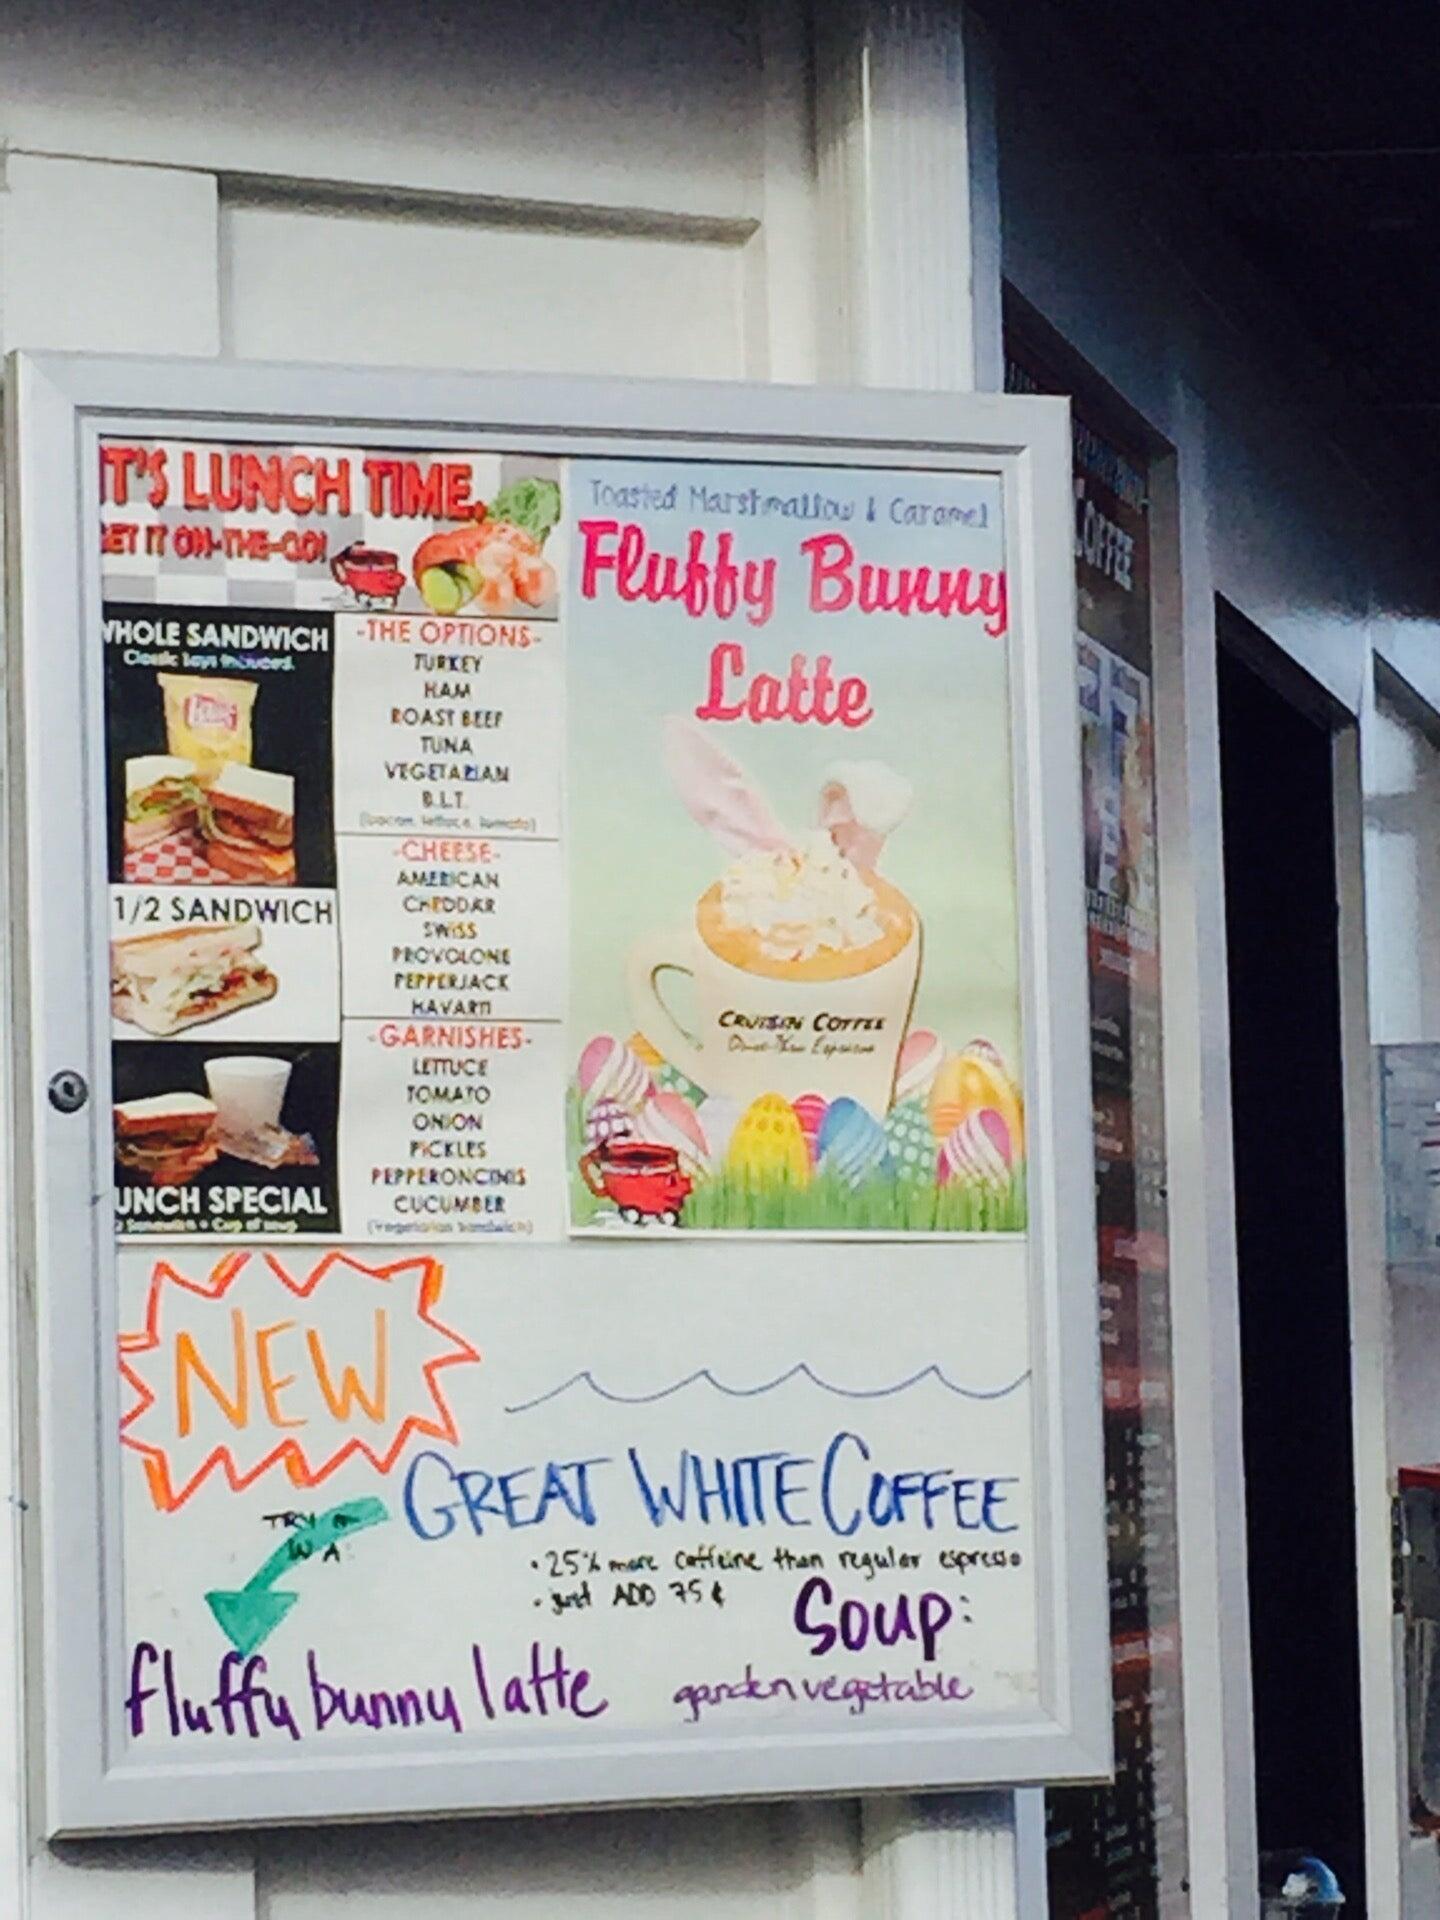 IT'S LUNCH TIME.
GET IT ON-THE-GO!
WHOLE SANDWICH
Classic Lays Included.
1/2 SANDWICH
LUNCH SPECIAL
Sandwich + Cup of soup
-THE OPTIONS-
TURKEY
HAM
ROAST BEEF
TUNA
VEGETARIAN
B.L.T.
(bacon, lettuce, tomato)
-CHEESE-
AMERICAN
CHEDDAR
SWISS
PROVOLONE
PEPPERJACK
HAVARTI
-GARNISHES-
LETTUCE
TOMATO
ONION
PICKLES
PEPPERONCINIS
CUCUMBER
(Vegetarian Sandwich)
Toasted Marshmallow & Caramel
Fluffy Bunny
Latte
CRUISIN COFFEE
Drive-Thru Espresso
NEW
GREAT WHITE COFFEE
• 25% more caffeine than regular espresso
• just ADD 75¢
TRY
IN A:
fluffy bunny latte
Soup:
garden vegetable
COFFEE